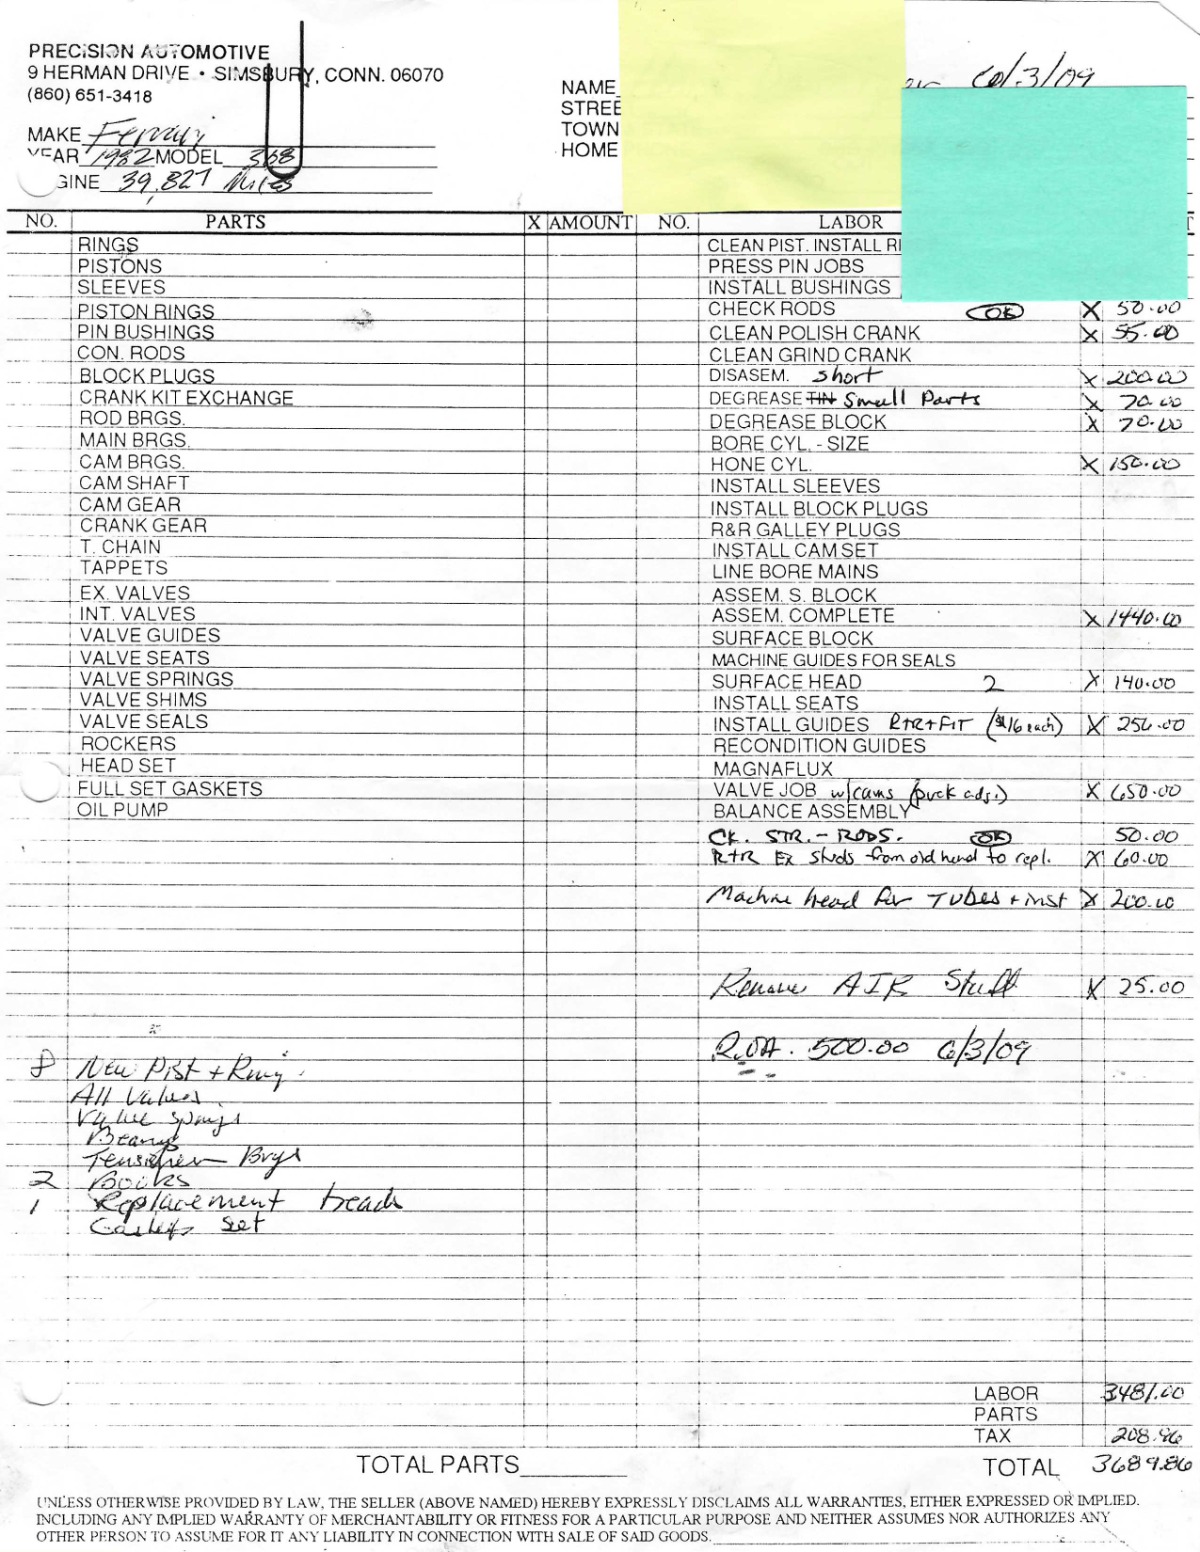 PRECISION AUTOMOTIVE
9 HERMAN DRIVE • SIMSBURY, CONN. 06070
(860) 651-3418
NAME 6/3/09
STREE
TOWN
HOME
MAKE Ferrari
YEAR 1982 MODEL 308
GINE 39,827 Miles
NO. PARTS X AMOUNT NO. LABOR
RINGS CLEAN PIST. INSTALL RI
PISTONS PRESS PIN JOBS
SLEEVES INSTALL BUSHINGS
PISTON RINGS CHECK RODS OK X 50.00
PIN BUSHINGS CLEAN POLISH CRANK X 55.00
CON. RODS CLEAN GRIND CRANK
BLOCK PLUGS DISASEM. Short X 200.00
CRANK KIT EXCHANGE DEGREASE TIN Small Parts X 70.00
ROD BRGS. DEGREASE BLOCK X 70.00
MAIN BRGS. BORE CYL. - SIZE
CAM BRGS. HONE CYL. X 150.00
CAM SHAFT INSTALL SLEEVES
CAM GEAR INSTALL BLOCK PLUGS
CRANK GEAR R&R GALLEY PLUGS
T. CHAIN INSTALL CAM SET
TAPPETS LINE BORE MAINS
EX. VALVES ASSEM. S. BLOCK
INT. VALVES ASSEM. COMPLETE X 1440.00
VALVE GUIDES SURFACE BLOCK
VALVE SEATS MACHINE GUIDES FOR SEALS
VALVE SPRINGS SURFACE HEAD 2 X 140.00
VALVE SHIMS INSTALL SEATS
VALVE SEALS INSTALL GUIDES R+R+FIT ($16 each) X 256.00
ROCKERS RECONDITION GUIDES
HEAD SET MAGNAFLUX
FULL SET GASKETS VALVE JOB w/cams (puck adj.) X 650.00
OIL PUMP BALANCE ASSEMBLY
CK. STR. - RODS. OK 50.00
R+R Ex studs from old head to repl. X 60.00
Machine head for TUBES + inst X 200.00
Remove AIR Stuff X 25.00
R.O.A. 500.00 6/3/09
8 New Pist + Ring
All Valves
Valve Springs
Bearings
Tensioner Brgs
2 Books
1 Replacement head
Gaskets set
LABOR 3481.00
PARTS
TAX 208.86
TOTAL PARTS TOTAL 3689.86
UNLESS OTHERWISE PROVIDED BY LAW, THE SELLER (ABOVE NAMED) HEREBY EXPRESSLY DISCLAIMS ALL WARRANTIES, EITHER EXPRESSED OR IMPLIED.
INCLUDING ANY IMPLIED WARRANTY OF MERCHANTABILITY OR FITNESS FOR A PARTICULAR PURPOSE AND NEITHER ASSUMES NOR AUTHORIZES ANY
OTHER PERSON TO ASSUME FOR IT ANY LIABILITY IN CONNECTION WITH SALE OF SAID GOODS.